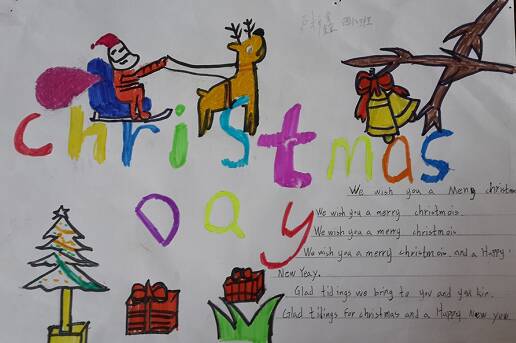 christmas
Day
We wish you a Merry christm
We wish you a merry christmois.
We wish you a merry christmois.
We wish you a merry christmois. and a Happy
New Year.
Glad tidings we bring to you and you kin.
Glad tidings for christmas and a Happy New year